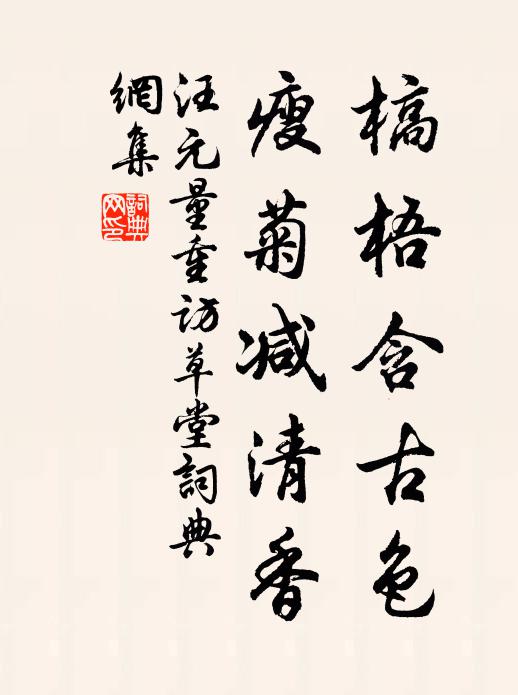 槁梧含古色
瘦菊减清香
汪元量重访草堂詞典
網集
詞典
网印